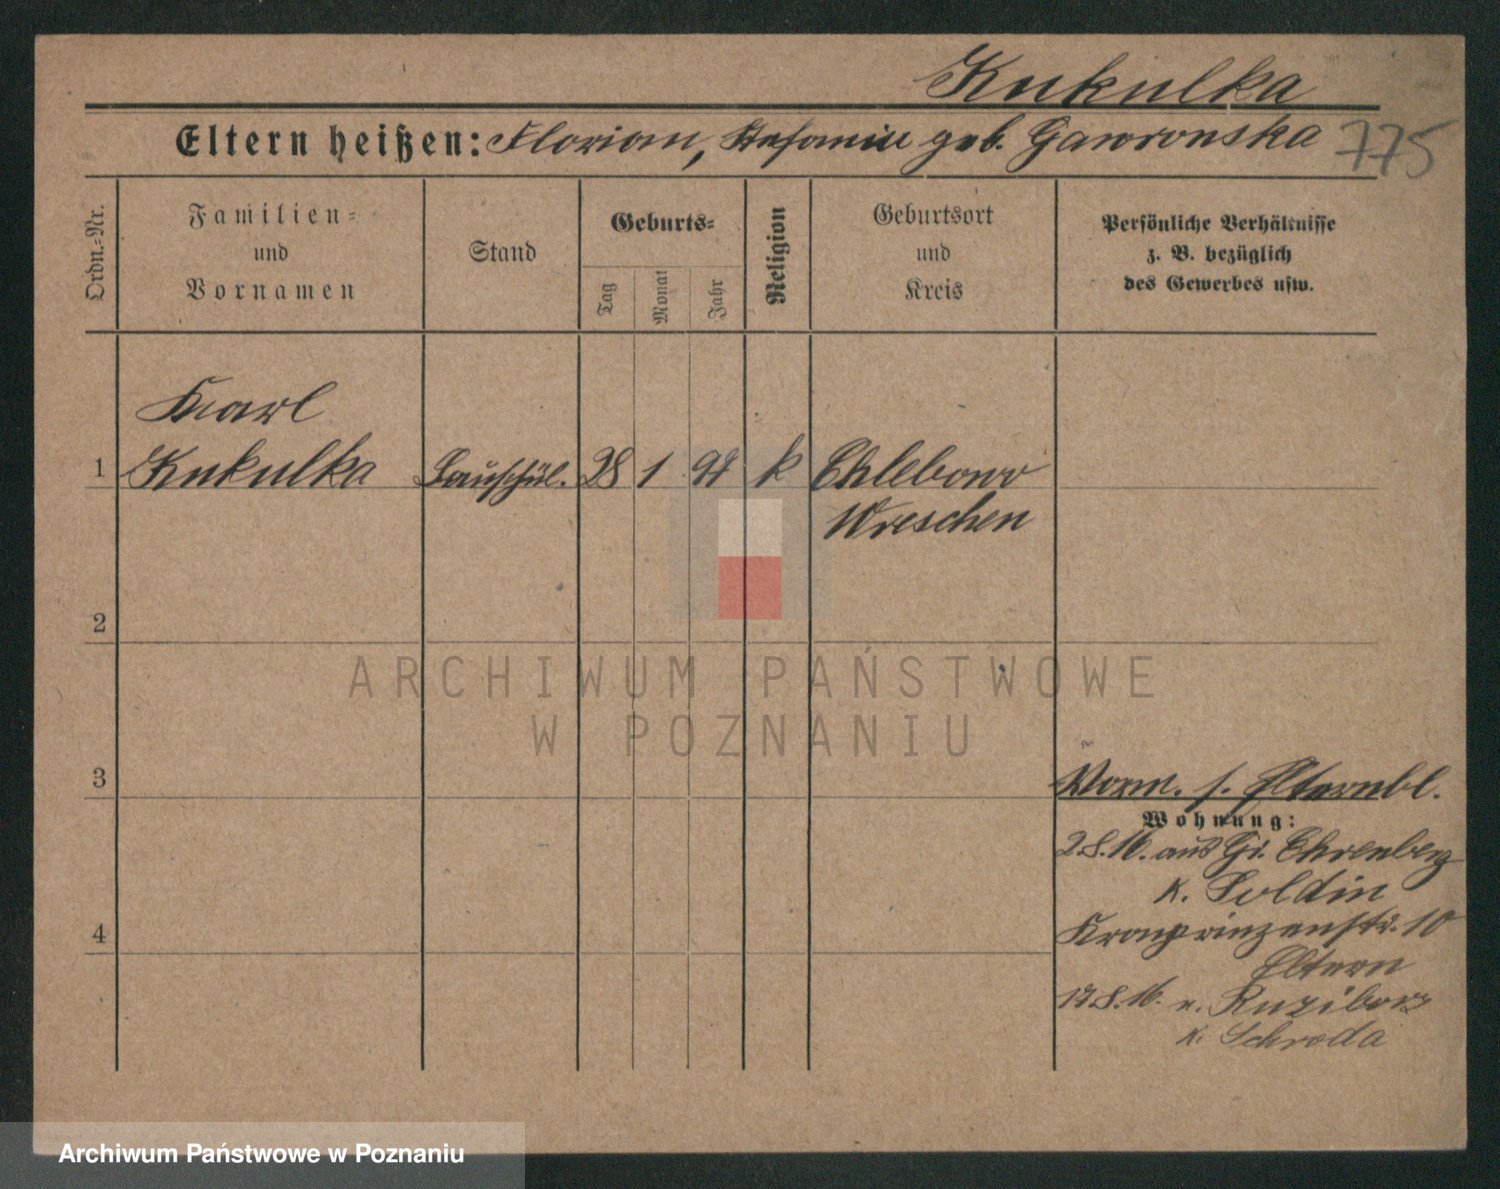 Kukulka
Eltern heißen: Florian, Stefanie geb. Gawronska 775
Ordn.-Nr.
Familien-
und
Vornamen
Stand
Geburts-
Tag
Monat
Jahr
Religion
Geburtsort
und
Kreis
Persönliche Verhältnisse
z. B. bezüglich
des Gewerbes usw.
Karl
1 Kukulka 28 1 94 k Chlebowo
Wreschen
2
ARCHIWUM PAŃSTWOWE
W POZNANIU
3
Vorm. s. Elternbl.
Wohnung:
2.8.16. aus Gr. Ehrenberg
K. Soldin
Kronprinzenstr. 10
4
Eltern
17.8.16. n. Ruziborz
K. Schroda
Archiwum Państwowe w Poznaniu